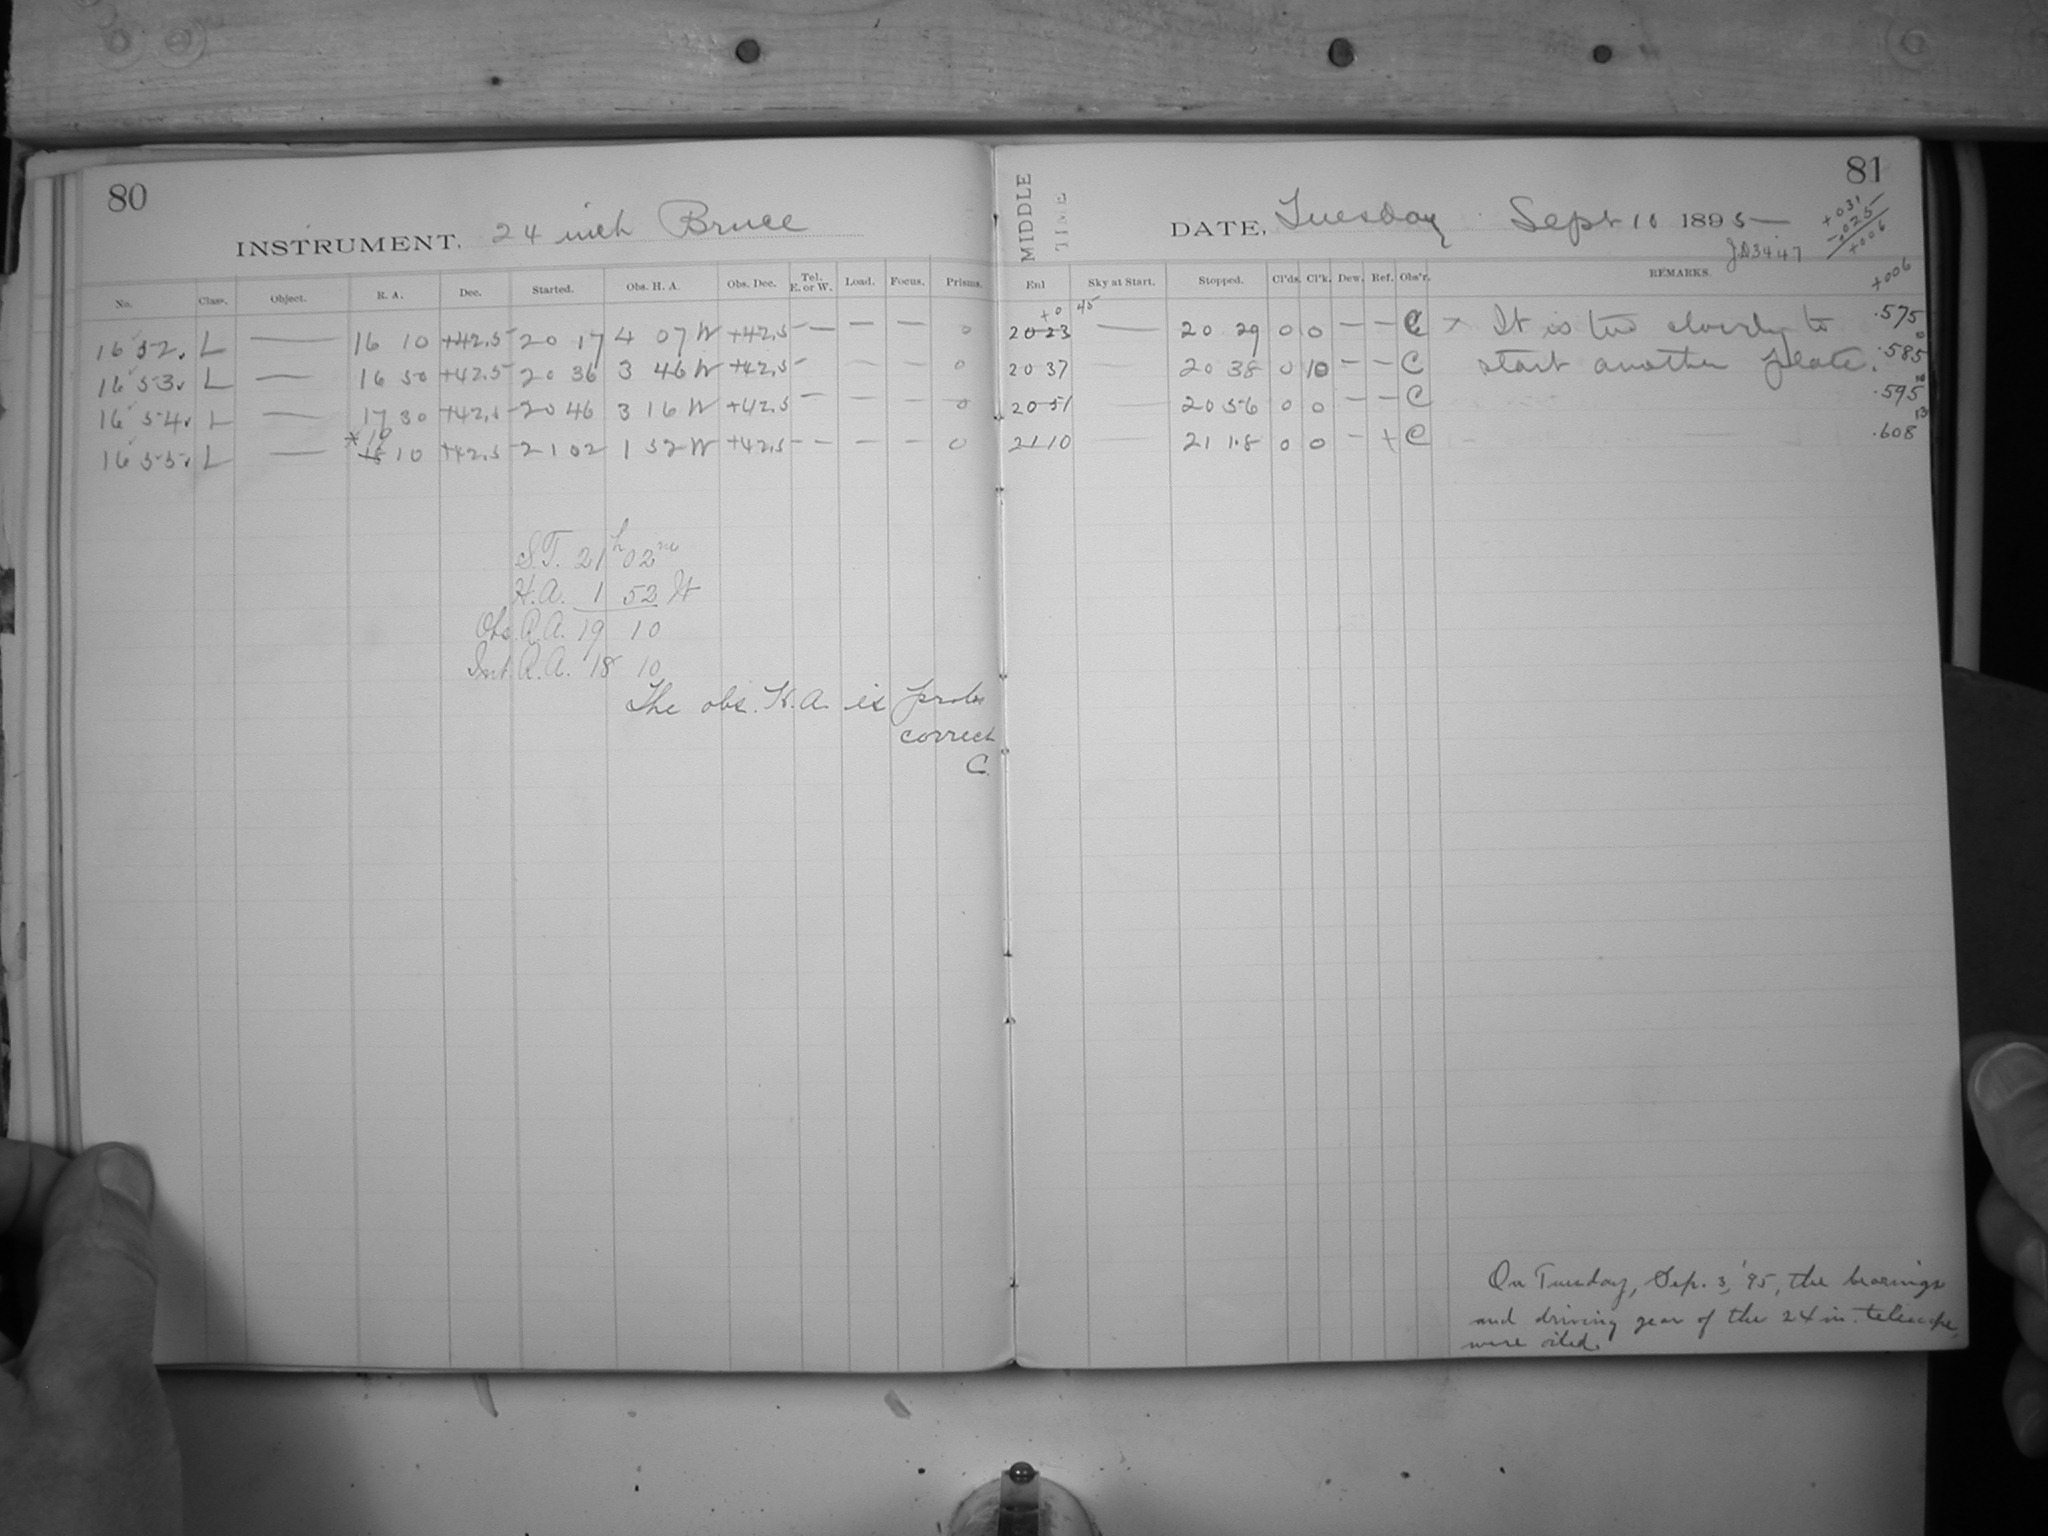 80
INSTRUMENT, 24 inch Bruce
No. Class. Object. R. A. Dec. Started. Obs. H. A. Obs. Dec. Tel. E. or W. Load. Focus. Prisms.
1652. L — 16 10 +42.5 20 17 4 07 W +42.5 — — — 0
1653. L — 16 50 +42.5 20 36 3 46 W +42.5 — — — 0
1654. L — 17 30 +42.5 20 46 3 16 W +42.5 — — — 0
* 19
1655. L — 18 10 +42.5 21 02 1 52 W +42.5 — — — 0
S.T. 21h 02m
H.A. 1 52 W
Obs. R.A. 19 10
Int. R.A. 18 10
The obs. H.A. is prob
correct
C.
81
MIDDLE TIME
DATE, Tuesday Sept 10 1895
J.D. 3447
+031
-.025
+006
Enl Sky at Start. Stopped. Cl'ds. Cl'k. Dew. Ref. Obs'r. REMARKS.
+006
+0 45
20 23 — 20 29 0 0 — — C x It is too cloudy to .575
10
20 37 — 20 38 0 10 — — C start another plate. .585
10
20 51 — 20 56 0 0 — — C .595
13
21 10 — 21 18 0 0 — + C .608
On Tuesday, Sep. 3, '95, the bearings
and driving gear of the 24 in. telescope
were oiled.